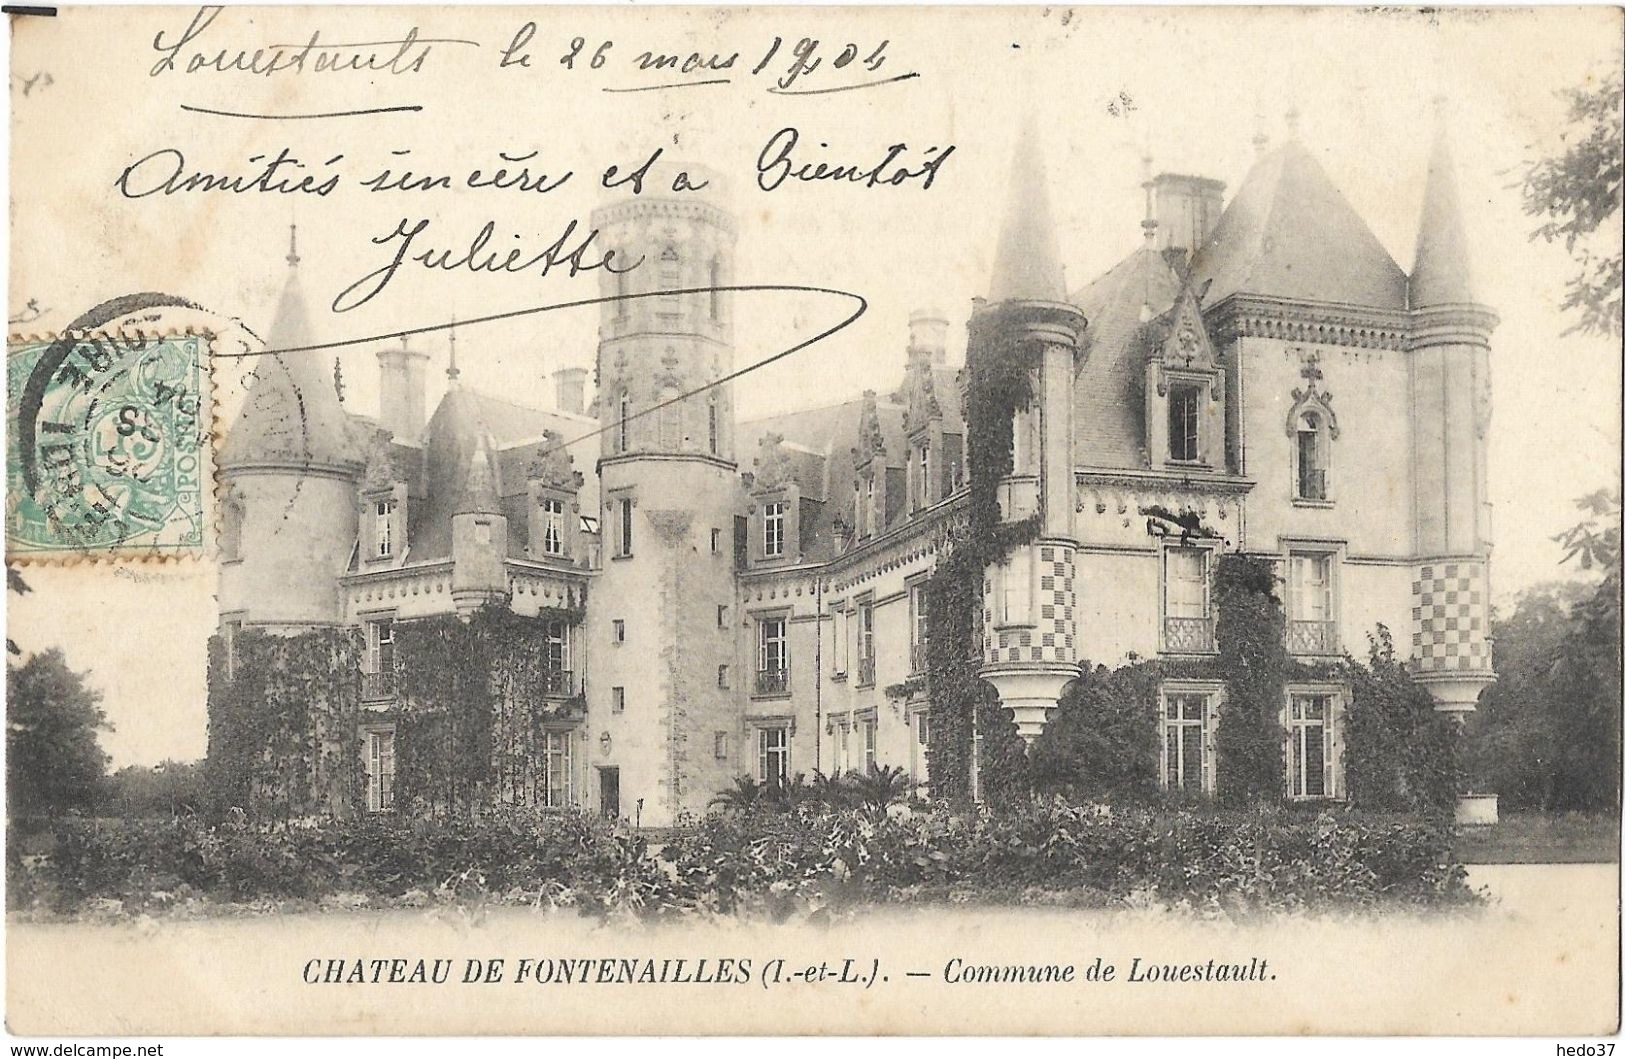 Louestaults le 26 mars 1904
Amitiés sincère et a Bientôt
Juliette
5c
POSTES
INDRE
LOIRE
26
04
CHATEAU DE FONTENAILLES (I.-et-L.). — Commune de Louestault.
www.delcampe.net
hedo37